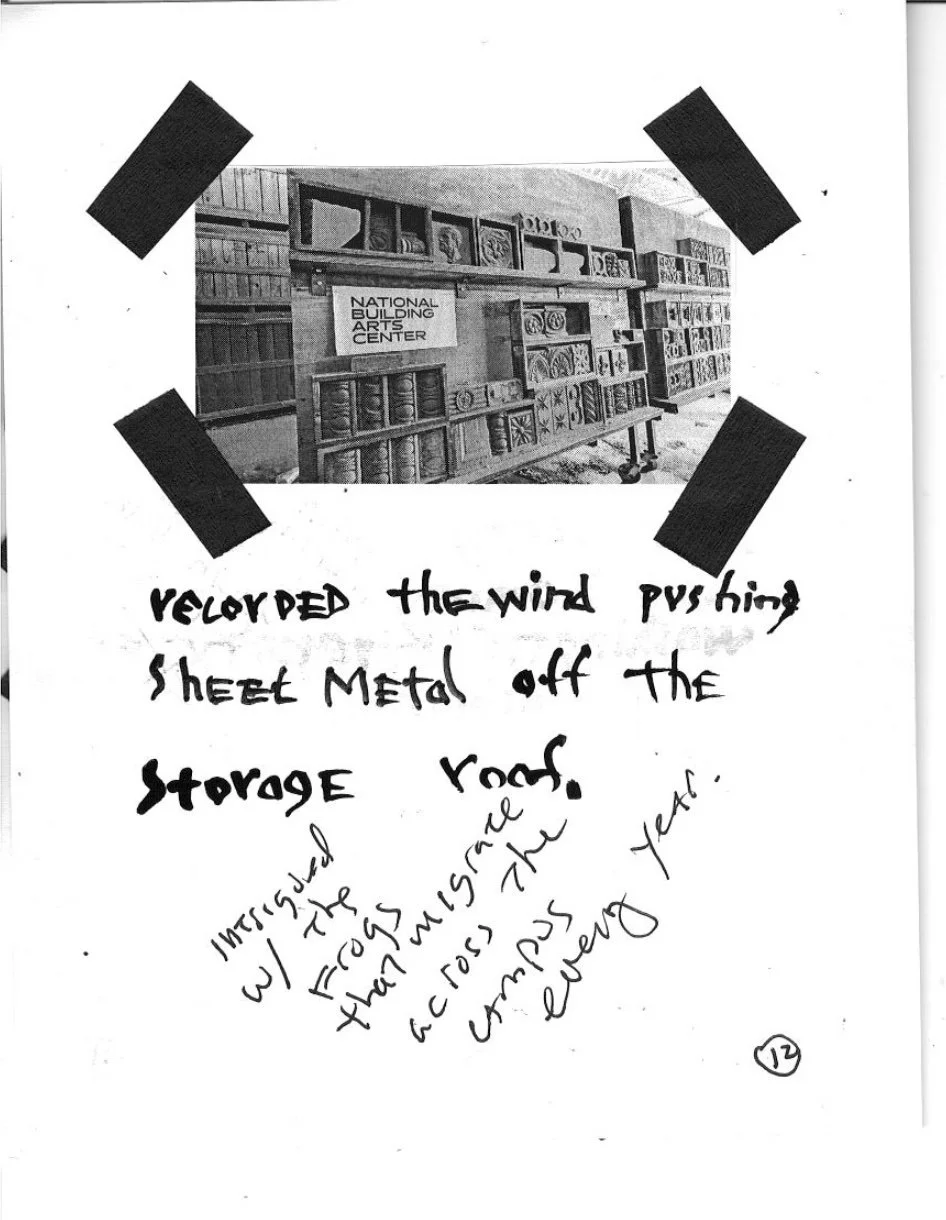 NATIONAL
BUILDING
ARTS
CENTER
recorDED thE wind pushing
ShEEt MEtal off thE
StoragE roof.
Intrigued
w/ The
Frogs
that migrate
across The
campus
every year.
12